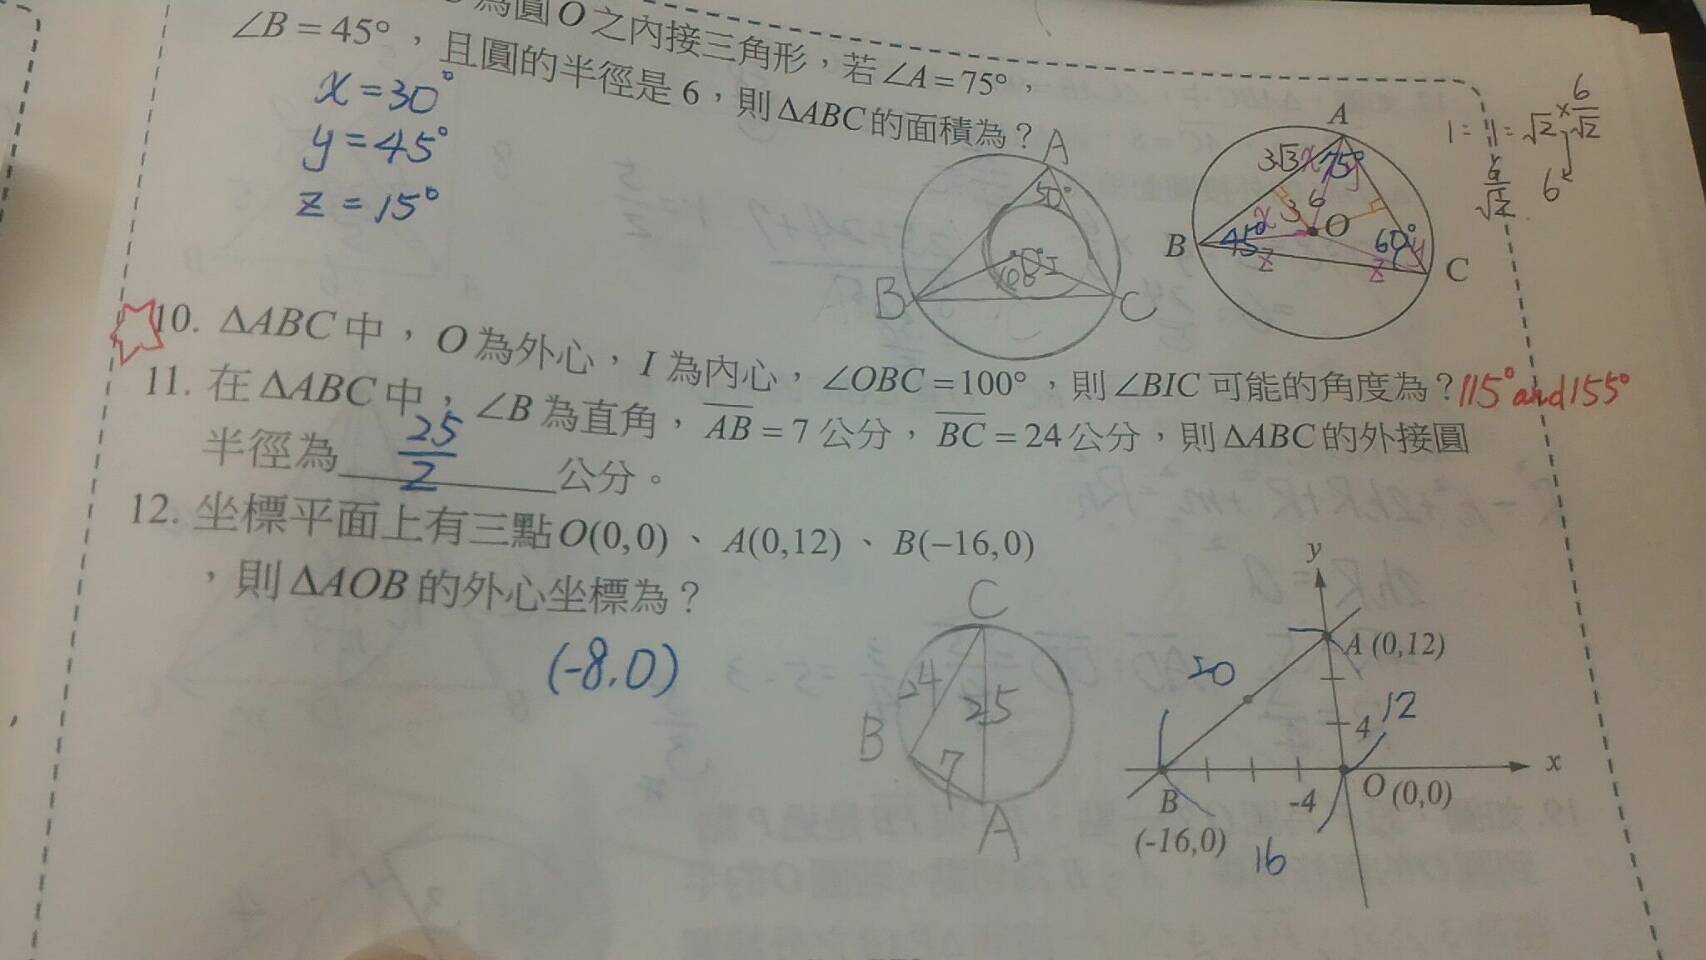 為圓O之內接三角形，若∠A=75°，
∠B=45°，且圓的半徑是6，則ΔABC的面積為？
x=30°
y=45°
z=15°
A
50°
I
B
C
A
3√3 x 75° y
3 6
x O
B 45° 60° y
z z C
1=1=√2
×6/√2
6/√2 6
10. ΔABC中，O為外心，I為內心，∠OBC=100°，則∠BIC可能的角度為？115°and155°
11. 在ΔABC中，∠B為直角，AB=7公分，BC=24公分，則ΔABC的外接圓
半徑為 25/2 公分。
12. 坐標平面上有三點O(0,0)、A(0,12)、B(−16,0)
，則ΔAOB的外心坐標為？
(-8,0)
C
24
25
B
7
A
y
A (0,12)
20
12
4
x
B
-4
O (0,0)
(-16,0)
16